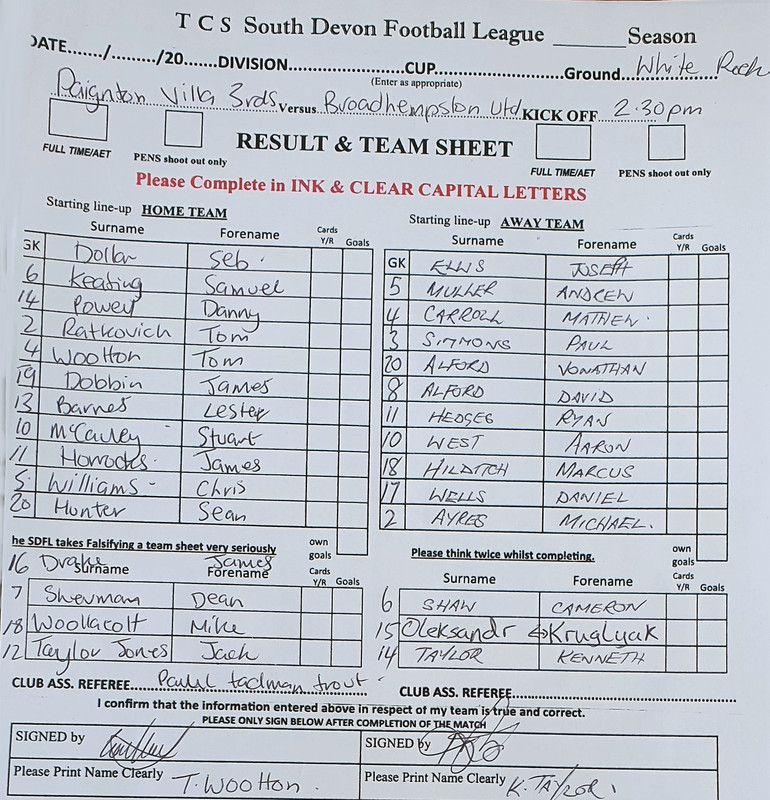 T C S South Devon Football League ______ Season
DATE....../......../20......DIVISION......................CUP........................Ground White Rock
(Enter as appropriate)
Paignton Villa 3rds Versus Broadhempston Utd KICK OFF 2.30pm
FULL TIME/AET PENS shoot out only RESULT & TEAM SHEET FULL TIME/AET PENS shoot out only
Please Complete in INK & CLEAR CAPITAL LETTERS
Starting line-up HOME TEAM Starting line-up AWAY TEAM
Surname Forename Cards Y/R Goals Surname Forename Cards Y/R Goals
GK Dollan Seb GK ELLIS JOSEPH
6 Keating Samuel 5 MULLER ANDREW
14 Power Danny 4 CARROLL MATHEW
2 Ratkovich Tom 3 SIMMONS PAUL
4 Wootton Tom 20 ALFORD JONATHAN
19 Dobbin James 8 ALFORD DAVID
13 Barnes Lester 11 HEDGES RYAN
10 McCauley Stuart 10 WEST AARON
11 Horrocks James 18 HILDITCH MARCUS
5 Williams Chris 17 WELLS DANIEL
20 Hunter Sean 2 AYRES MICHAEL.
own goals own goals
he SDFL takes Falsifying a team sheet very seriously Please think twice whilst completing.
16 Drake James
Surname Forename Cards Y/R Goals Surname Forename Cards Y/R Goals
7 Sherman Dean 6 SHAW CAMERON
18 Woollacott Mike 15 Oleksandr ⇔ Kruglyak
12 Taylor Jones Jack 14 TAYLOR KENNETH
CLUB ASS. REFEREE Paul tadman trout CLUB ASS. REFEREE
I confirm that the information entered above in respect of my team is true and correct.
PLEASE ONLY SIGN BELOW AFTER COMPLETION OF THE MATCH
SIGNED by SIGNED by
Please Print Name Clearly T. Wootton. Please Print Name Clearly K. TAYLOR.